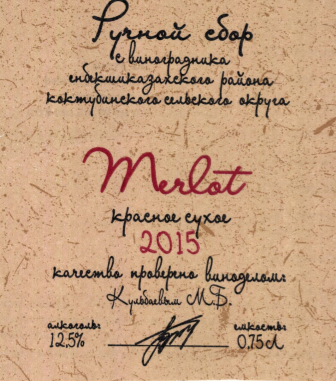 Ручной сбор
с виноградника
енбекшиказахского района
коктубинского сельского округа
Merlot
красное сухое
2015
качество проверено виноделом:
Кульбаевым М.Б.
алкоголь: емкость:
12,5% 0,75 л